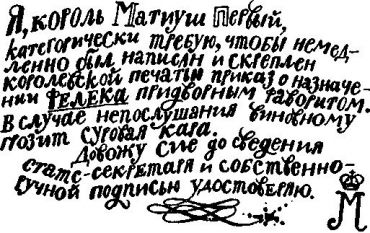 Я, король Матиуш Первый,
категорически требую, чтобы немед-
ленно был написан и скреплен
королевской печатью приказ о назначе-
нии Фелека придворным фаворитом.
В случае непослушания виновному
грозит суровая кара.
Довожу сие до сведения
статс-секретаря и собственно-
ручной подписью удостоверяю.
М